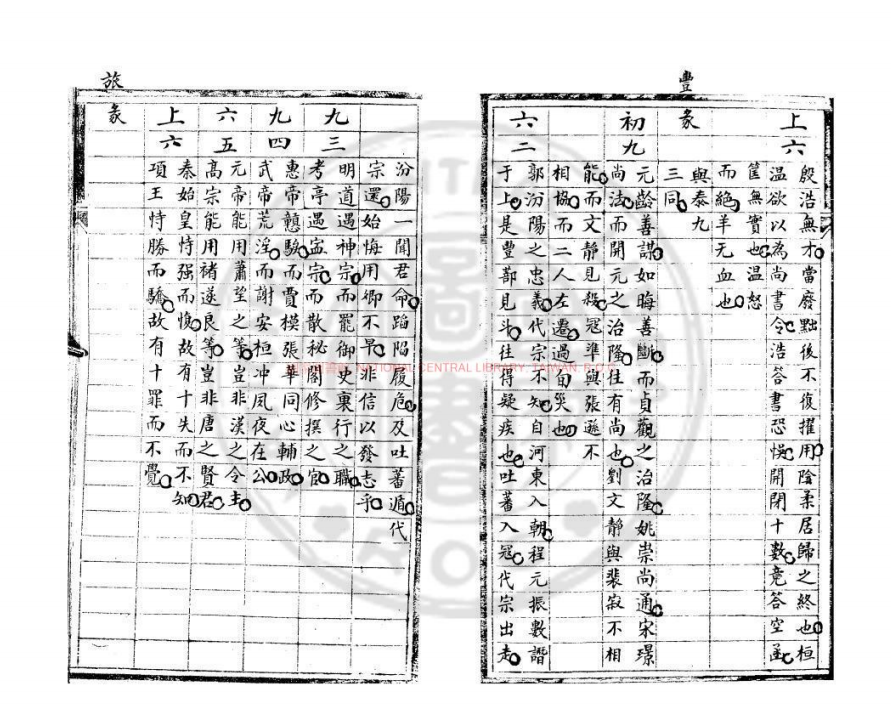 豐
上六
殷浩無才當廢點後不復擢用陰柔居歸之終也桓
溫欲以為尚書令浩答書恐悞開閉十數竟答空函
筐無實也溫怒
而絕羊无血也
與泰九
三同
彖
初九
元齡善謀如晦善斷而貞觀之治隆姚崇尚通宋璟
尚法而開元之治隆往有尚也劉文靜與裴寂不相
能而文靜見殺寇準與張遜不
相協而二人左遷過旬災也
六二
郭汾陽之忠義代宗不知自河東入朝程元振數譖
于上是豐蔀見斗往得疑疾也吐蕃入寇代宗出走
旅
汾陽一聞君命蹈陷履危及吐蕃遁代
宗還始悔用卿不早非信以發志乎
九三
明道遇神宗而罷御史裏行之職
考亭遇寧宗而散秘閣修撰之官
九四
惠帝戇騃而賈模張華同心輔政
武帝荒淫而謝安桓冲夙夜在公
六五
元帝能用蕭望之等豈非漢之令主
高宗能用褚遂良等豈非唐之賢君
上六
秦始皇恃强而愎故有十失而不知
項王恃勝而驕故有十罪而不覺
彖
NATIONAL CENTRAL LIBRARY, TAIWAN, R.O.C